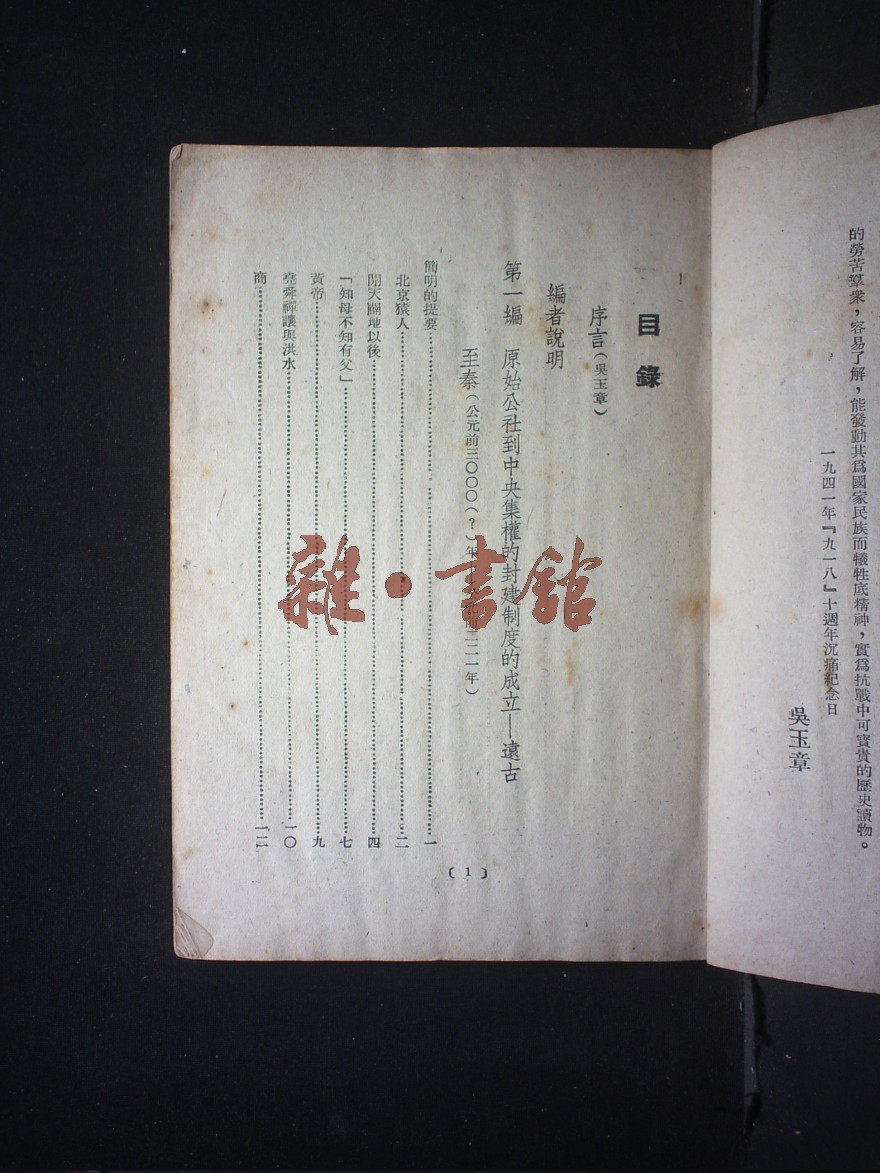 的勞苦羣衆，容易了解，能發動其爲國家民族而犧牲底精神，實爲抗戰中可寶貴的歷史讀物。
一九四一年『九一八』十週年沉痛紀念日
吳玉章
目錄
序言（吳玉章）
編者說明
第一編 原始公社到中央集權的封建制度的成立—遠古
至秦（公元前三〇〇〇（？）年 前二二一年）
簡明的提要……一
北京猿人……二
開天闢地以後……四
「知母不知有父」……七
黃帝……九
堯舜禪讓與洪水……一〇
商……一二
〔1〕
雜·書館